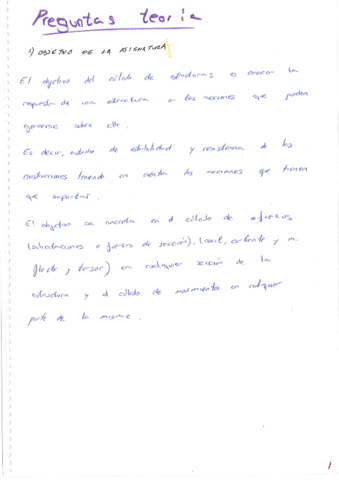 Preguntas teoría
1) OBJETIVO DE LA ASIGNATURA
El objetivo del cálculo de estructuras es conocer la
respuesta de una estructura a las acciones que pueden
generarse sobre ella.
Es decir, estudio de estabilidad y resistencia de las
construcciones teniendo en cuenta las acciones que tienen
que soportar.
El objetivo se concreta en el cálculo de esfuerzos
(solicitaciones o fuerzas de sección), (axil, cortante y m.
flector y torsor) en cualquier sección de la
estructura y el cálculo de movimientos en cualquier
parte de la misma.
1